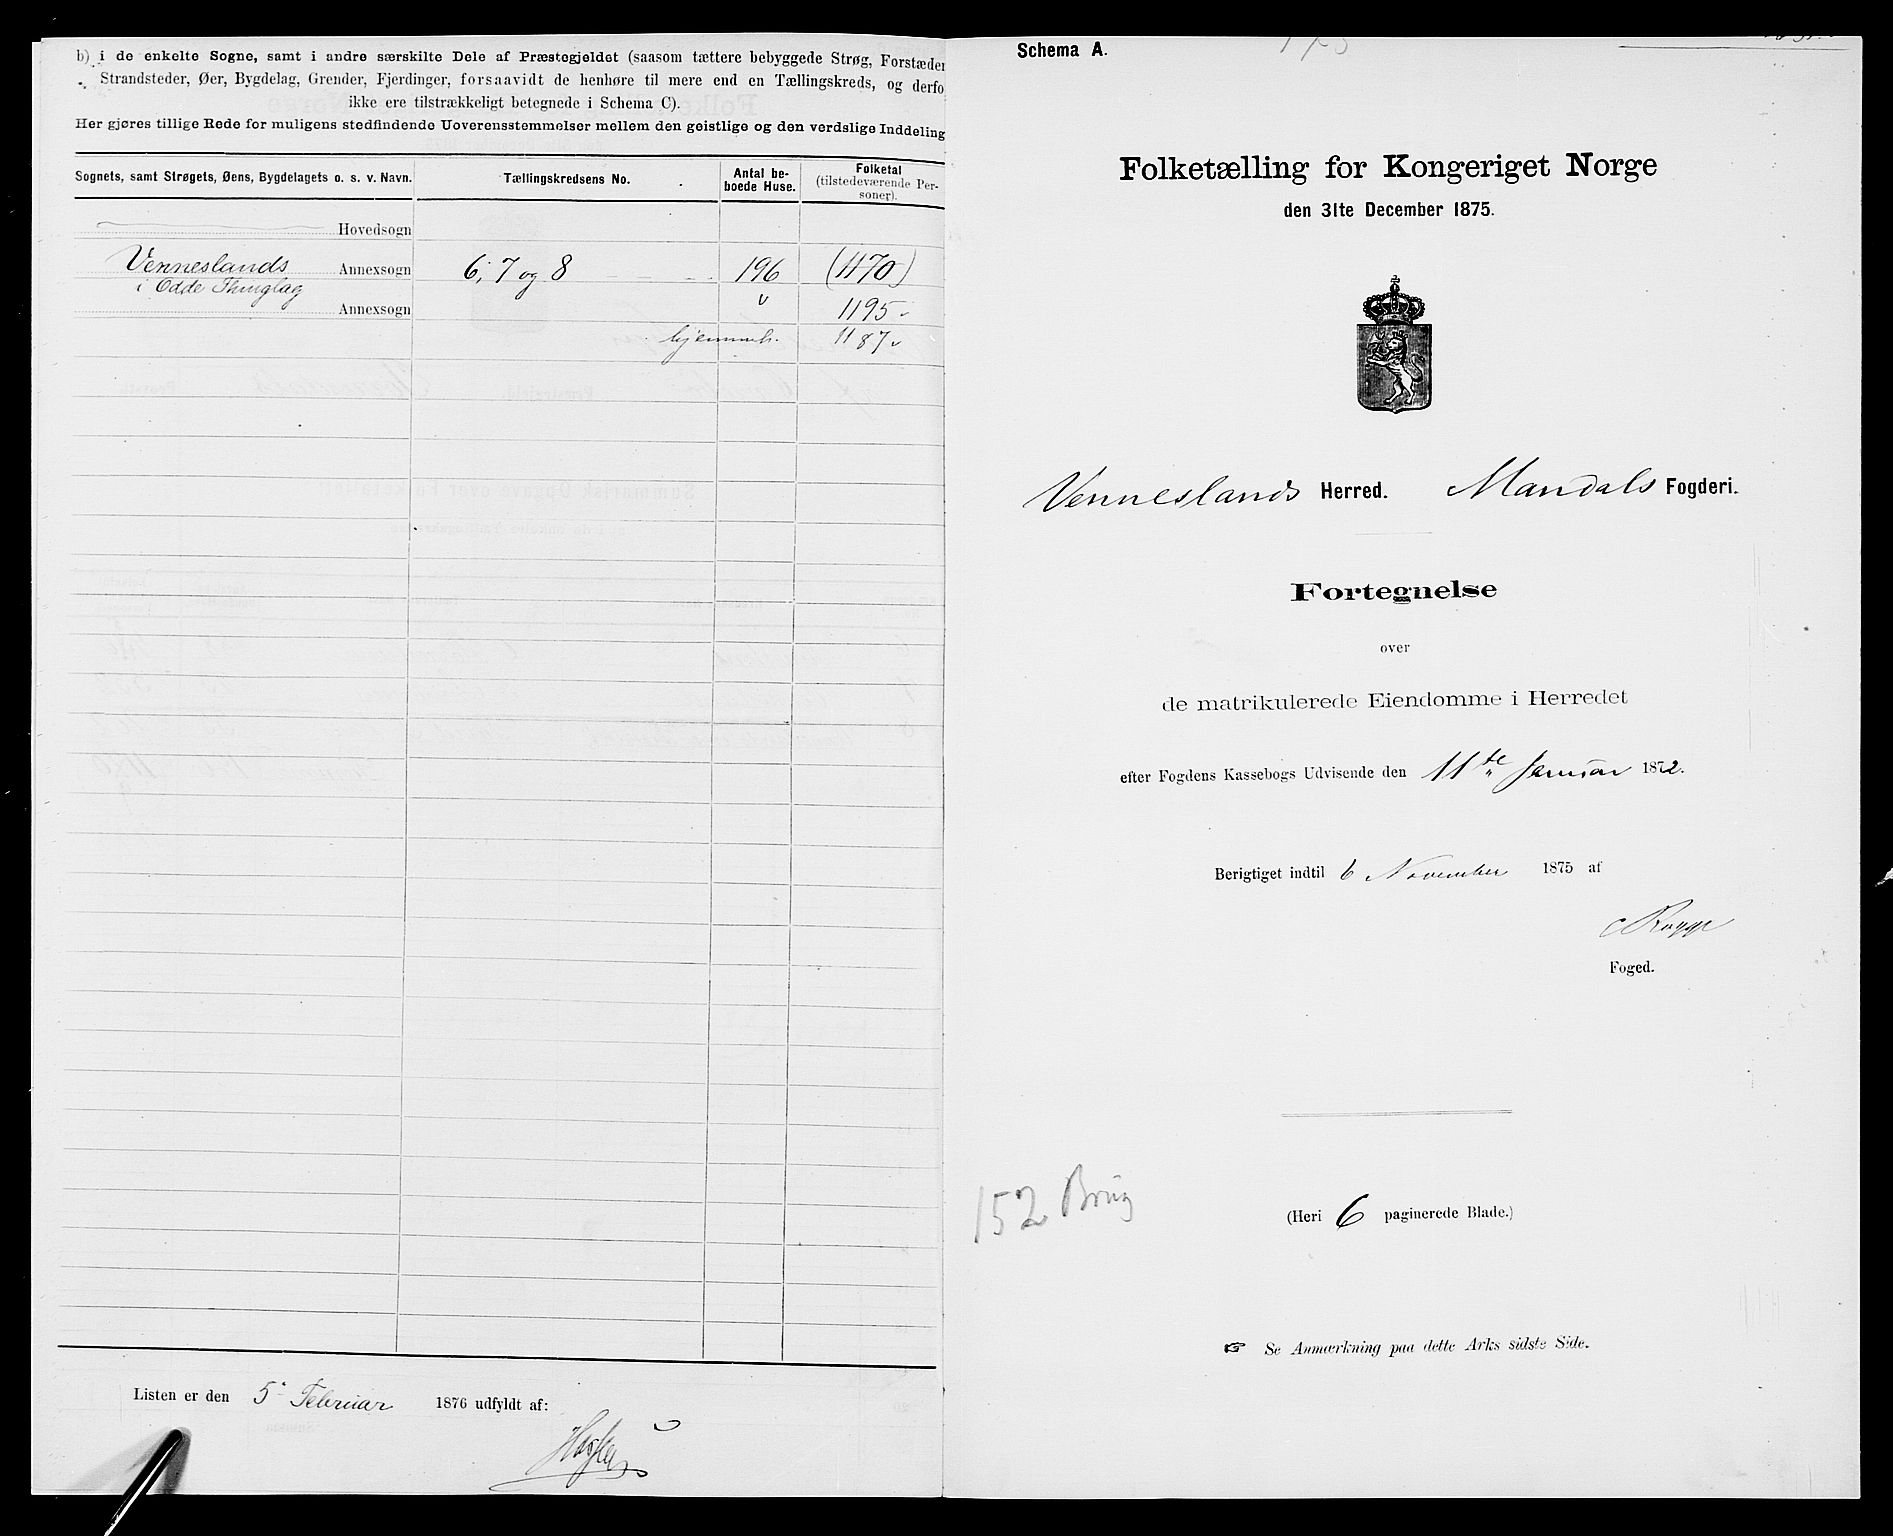 b) i de enkelte Sogne, samt i andre særskilte Dele af Præstegjeldet (saasom tættere bebyggede Strøg, Forstæder
Strandsteder, Øer, Bygdelag, Grender, Fjerdinger, forsaavidt de henhøre til mere end en Tællingskreds, og derfo
ikke ere tilstrækkeligt betegnede i Schema C).
Her gjøres tillige Rede for muligens stedfindende Uoverensstemmelser mellem den geistlige og den verdslige Inddeling
Sognets, samt Strøgets, Øens, Bygdelagets o. s. v. Navn.
Tællingskredsens No.
Antal be-
boede Huse.
Folketal
(tilstedeværende Per-
soner).
Hovedsogn
Venneslands Annexsogn 6, 7 og 8 196 (1170)
i Odde Thinglag
Annexsogn 1195
hjemmeh. 1187
Listen er den 5 Februar 1876 udfyldt af:
Schema A.
Folketælling for Kongeriget Norge
den 31te December 1875.
Venneslands Herred. Mandals Fogderi.
Fortegnelse
over
de matrikulerede Eiendomme i Herredet
efter Fogdens Kassebogs Udvisende den 11te Januar 1872.
Berigtiget indtil 6 November 1875 af
Foged.
152 Brug
(Heri 6 paginerede Blade.)
☞ Se Anmærkning paa dette Arks sidste Side.